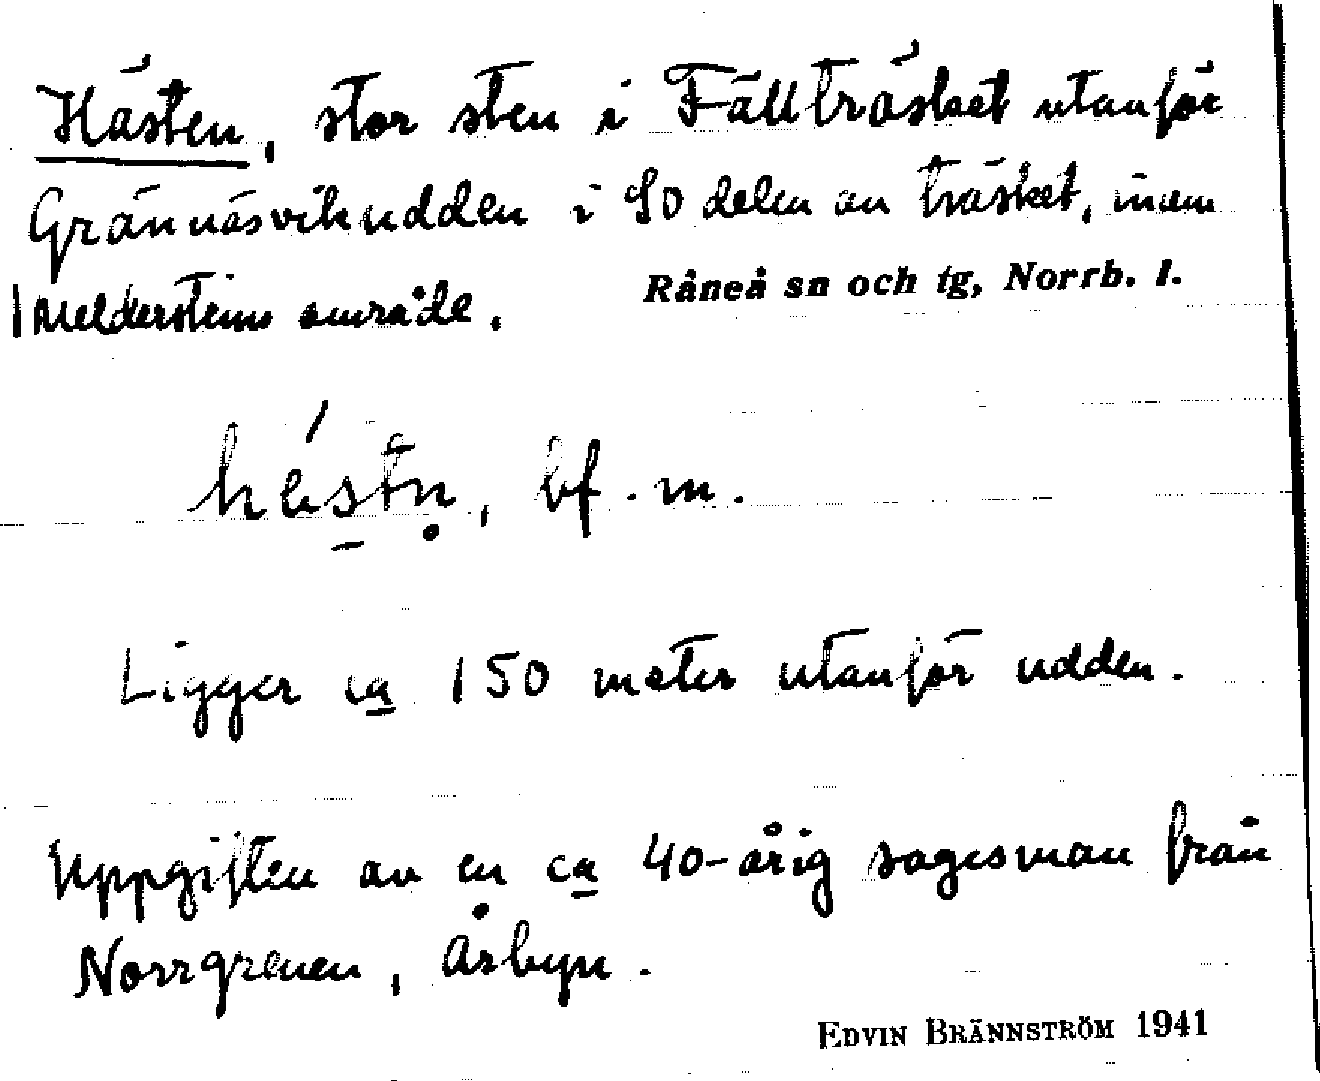 Hästen, stor sten i Fällträsket utanför
Grännäsvikudden i SO delen av träsket, inom
Meldersteins område.
Råneå sn och tg, Norrb. l.
héstn̥, bf. m.
Ligger ca 150 meter utanför udden.
Uppgiften av en ca 40-årig sagesman från
Norrgrenen, Åsbyn.
EDVIN BRÄNNSTRÖM 1941